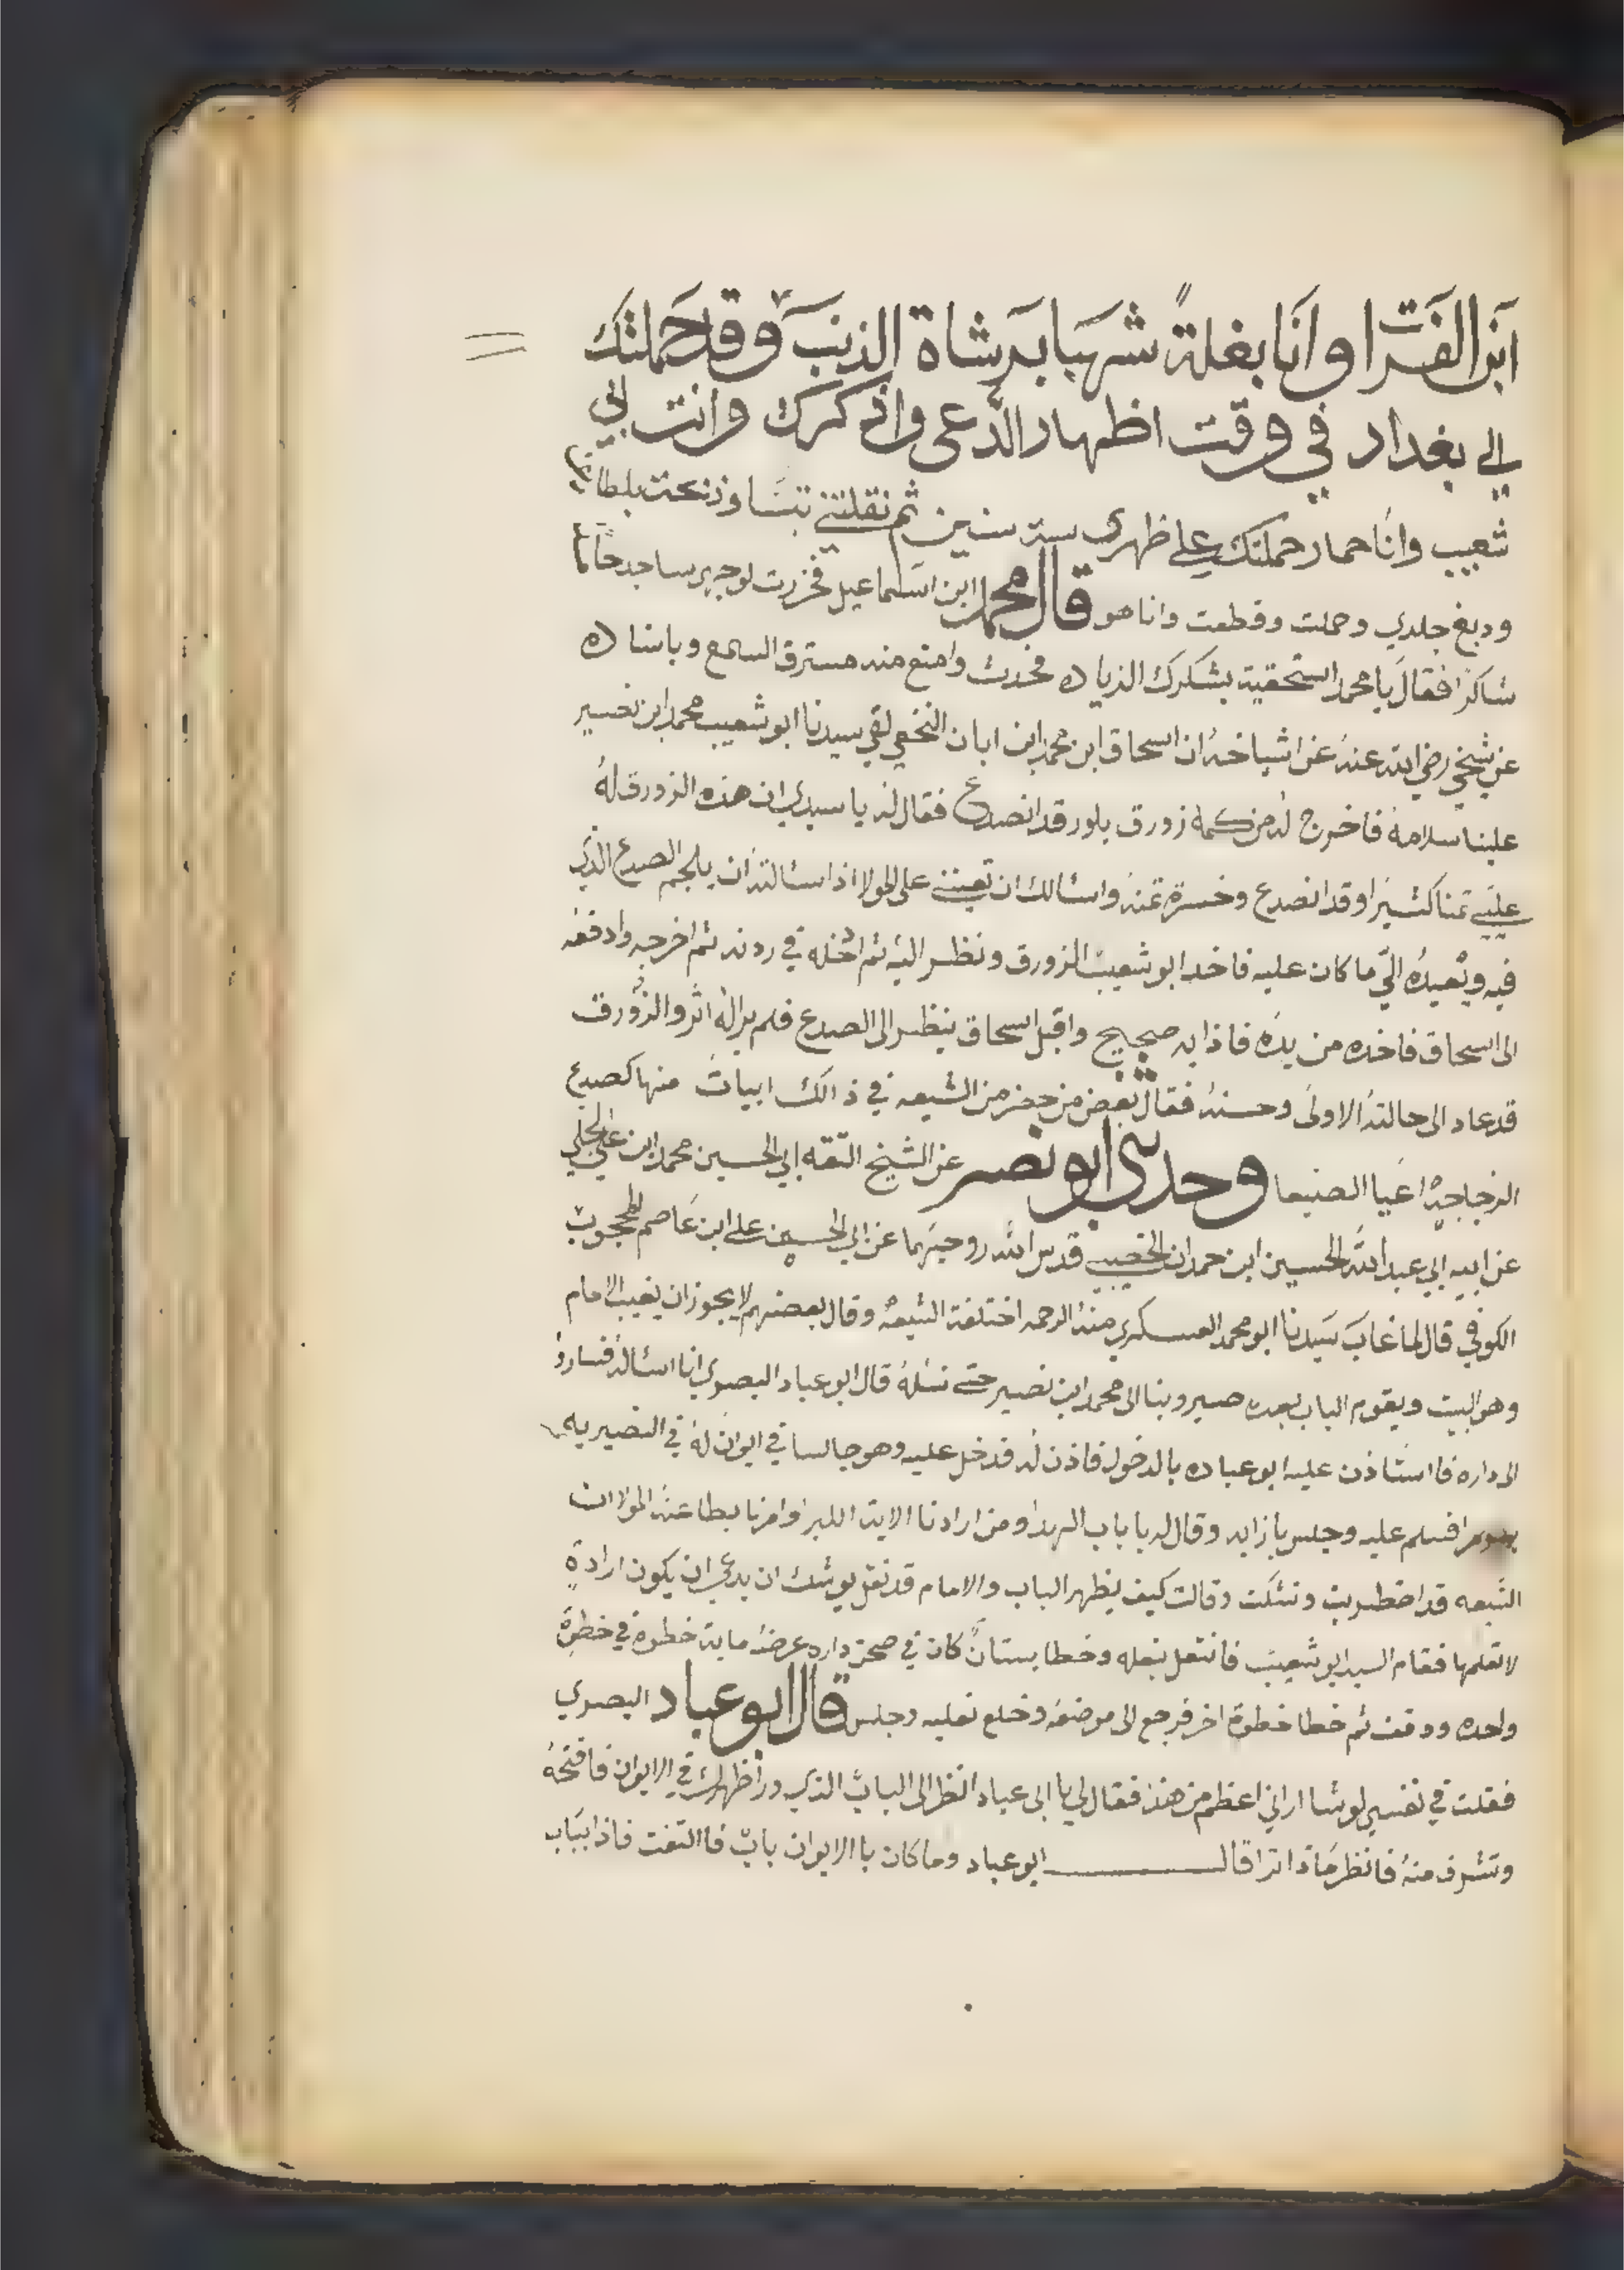 ابن الفرات وانا بغلةً شهبا برشاة الذنب وقد حملتك
الي بغداد في وقت اظهار الدعي واذكرك وانت لي
شعيب وانا حمار حملتك علي ظهري ستة سنين ثم نقلتني تيسا وذبحت
ودبغ جلدي وحملت وقطعت وانا هو قال محمد ابن اسماعيل فخررت لوجهي ساجد حامدا
شاكرا فقال يا محمد استحقيته بشكرك الذي محدث وامنع منه مسترق السمع
عن شيخي رضي الله عنه عن اشياخه ان اسحاق ابن محمد ابن ابان النخعي لقي سيدنا ابو شعيب محمد ابن نصير
علينا سلامه فاخرج له من كمه زورق بلور قد انصدع فقال له يا سيدي ان هذه الزورق له
عليّ ثمنا كثيرا وقد انصدع وخسرة ثمنه واسالك ان تعينني على المولا اذا سالته ان يلحم الصدع الذي
فيه ويعيده الي ما كان عليه فاخد ابو شعيب الزورق ونظر اليه ثم ادخله في ردنه ثم اخرجه وادفعه
الى اسحاق فاخده من يده فاذا به صحيح واقبل اسحاق ينظر الى الصدع فلم يرا له اثر والزورق
قد عاد الى حالته الاولى وحسنه فقال بعض من حضر من الشيعه في ذالك ابيات منها كصدع
الزجاجة اعيا الصنيعا وحدثني ابو نصر عن الشيخ الثقه ابي الحسين محمد ابن علي الجلي
عن ابيه ابي عبد الله الحسين ابن حمدان الخصيبي قدس الله روحيهما عن ابي الحسين علي ابن عاصم المحجوب
الكوفي قال لما غاب سيدنا ابو محمد العسكري منه الرحمه اختلفة الشيعه وقال بعضهم لا يجوز ان يغيب الامام
وهو البيت ويقوم الباب بعده صيروبنا الى محمد ابن نصير حتى نسله قال ابو عباد البصري انا اساله فساروا
الى داره فااستاذن عليه ابو عباده بالدخول فاذن له فدخل عليه وهو جالسا في ايوان له في النصيريه
فسلم عليه وجلس بازايه وقال له يا باب الهدا ومن ارادنا الابتدا عند المولا ان
الشيعه قد اضطربت وتشكت وقالت كيف يظهر الباب والامام قد نقل يوشك ان يدعي ان يكون ارادة
لا نعلمها فقام السيد ابو شعيب فانتعل بنعله وخطا بستان كان في صحن داره عرضه ماية خطوة في خطوة
واحده ووقف ثم خطا خطوة اخر فرجع الى موضعه وخلع نعليه وجلس قال ابو عباد البصري
فقلت في نفسي لو شا اراني اعظم من هذا فقال لي يا ابى عباد انظر الى الباب الذي ورا ظهرك في الايوان فافتحه
وتشرف منه فانظر ماذا ترا قال ابو عباد وما كان باالايوان باب فاالتفت فاذا بباب